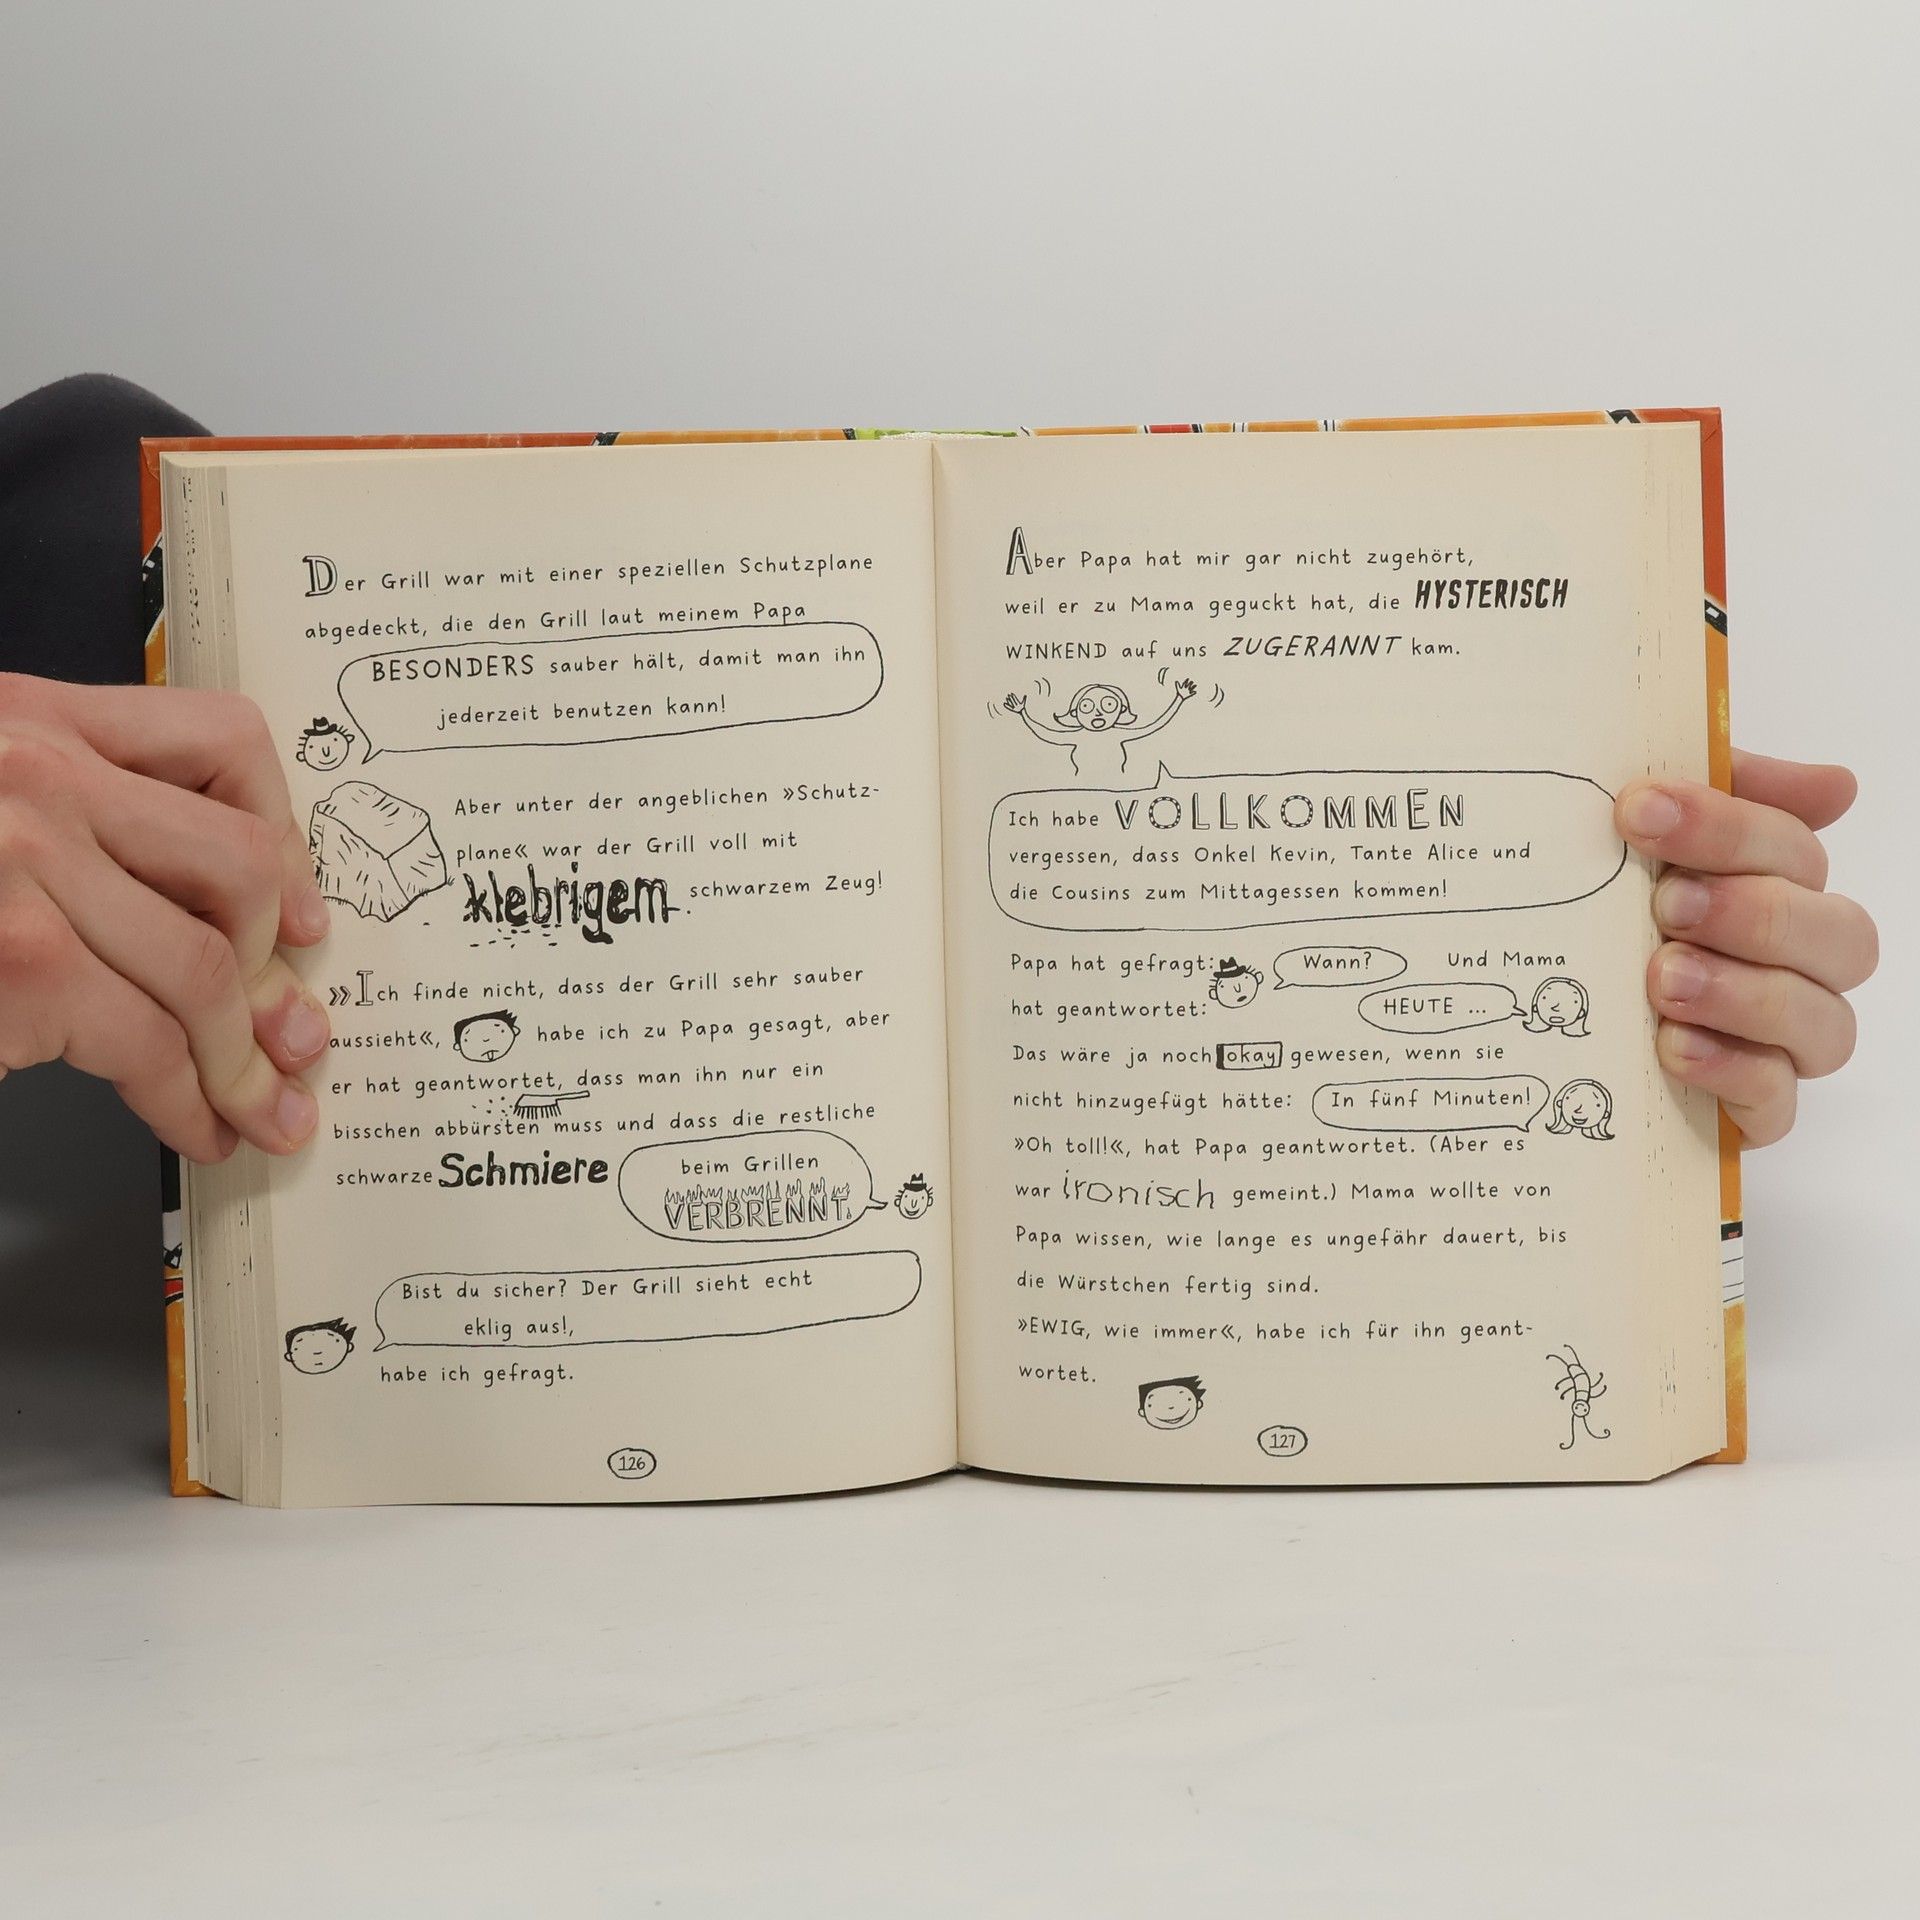 Der Grill war mit einer speziellen Schutzplane
abgedeckt, die den Grill laut meinem Papa
BESONDERS sauber hält, damit man ihn
jederzeit benutzen kann!
Aber unter der angeblichen »Schutz-
plane« war der Grill voll mit
klebrigem schwarzem Zeug!
»Ich finde nicht, dass der Grill sehr sauber
aussieht«, habe ich zu Papa gesagt, aber
er hat geantwortet, dass man ihn nur ein
bisschen abbürsten muss und dass die restliche
schwarze Schmiere beim Grillen
VERBRENNT.
Bist du sicher? Der Grill sieht echt
eklig aus!,
habe ich gefragt.
126
Aber Papa hat mir gar nicht zugehört,
weil er zu Mama geguckt hat, die HYSTERISCH
WINKEND auf uns ZUGERANNT kam.
Ich habe VOLLKOMMEN
vergessen, dass Onkel Kevin, Tante Alice und
die Cousins zum Mittagessen kommen!
Papa hat gefragt: Wann? Und Mama
hat geantwortet: HEUTE ...
Das wäre ja noch okay gewesen, wenn sie
nicht hinzugefügt hätte: In fünf Minuten!
»Oh toll!«, hat Papa geantwortet. (Aber es
war ironisch gemeint.) Mama wollte von
Papa wissen, wie lange es ungefähr dauert, bis
die Würstchen fertig sind.
»EWIG, wie immer«, habe ich für ihn geant-
wortet.
127